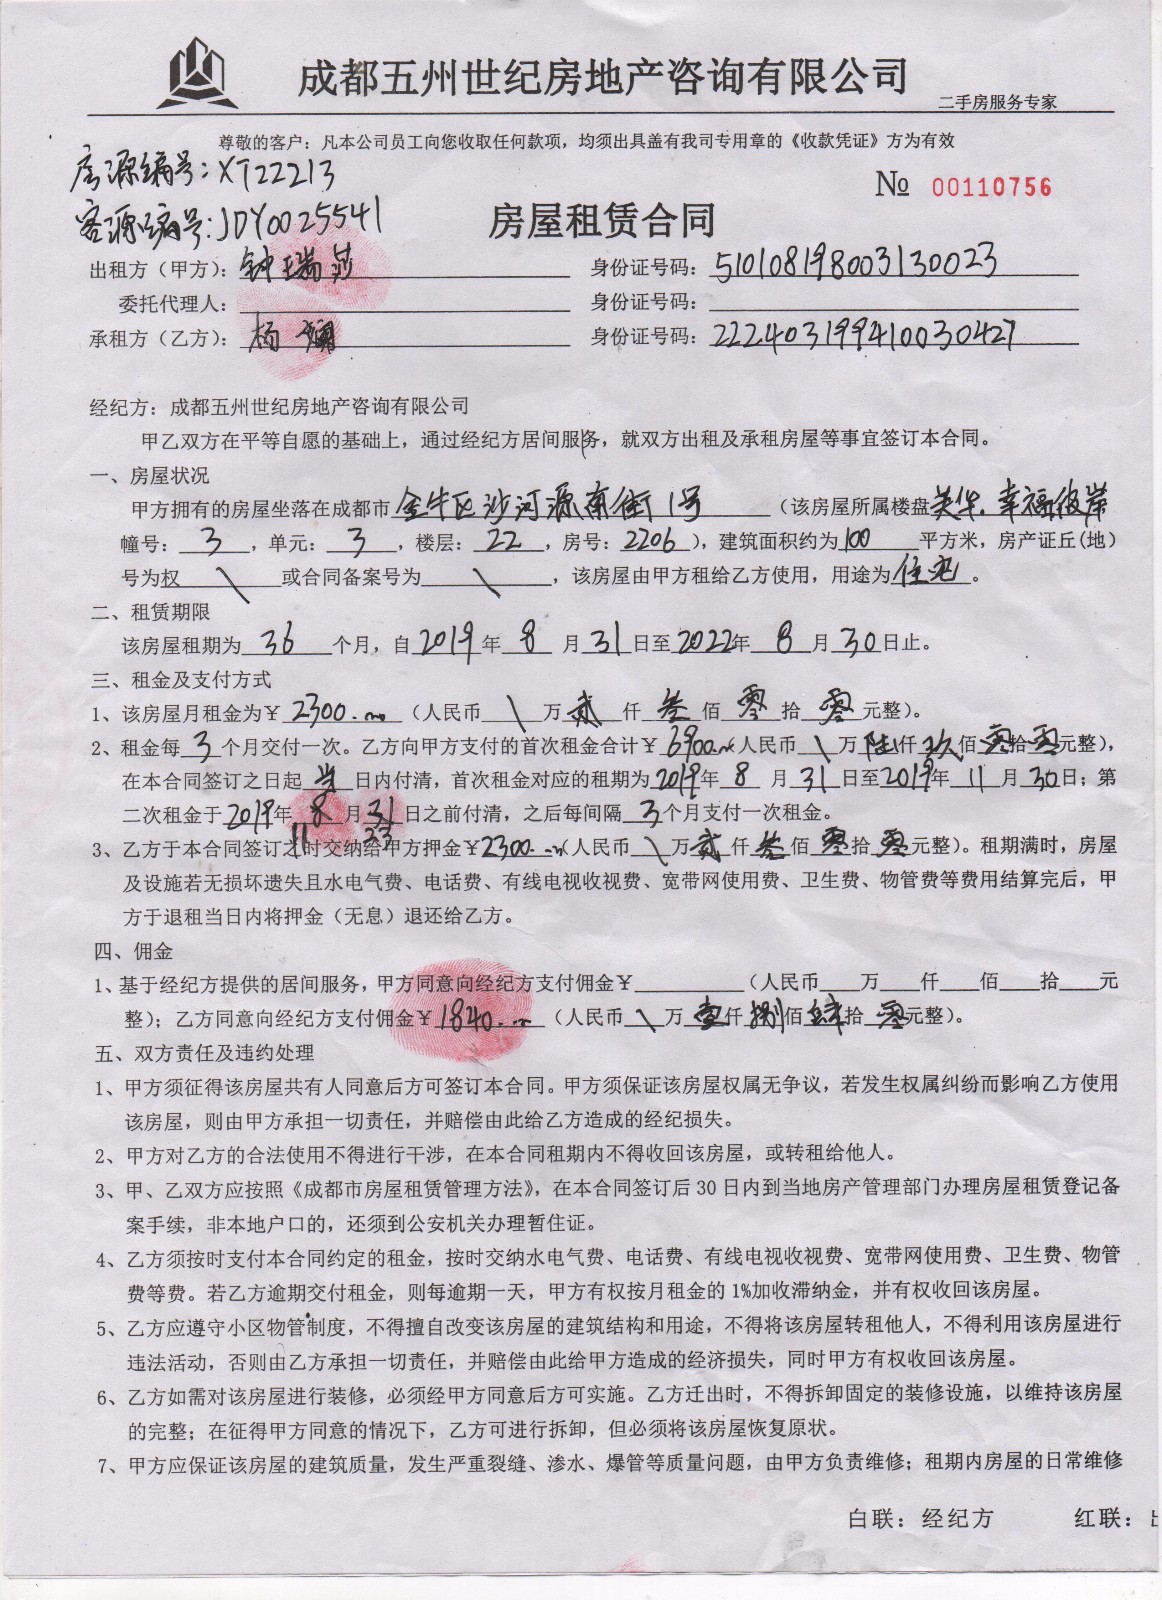 成都五州世纪房地产咨询有限公司
二手房服务专家
尊敬的客户：凡本公司员工向您收取任何款项，均须出具盖有我司专用章的《收款凭证》方为有效
房源编号：XT22213
№ 00110756
客源编号：JDY0025541
房屋租赁合同
出租方（甲方）：钟瑞莎 身份证号码：510108198003130023
委托代理人： 身份证号码：
承租方（乙方）：杨斓 身份证号码：222403199410030427
经纪方：成都五州世纪房地产咨询有限公司
甲乙双方在平等自愿的基础上，通过经纪方居间服务，就双方出租及承租房屋等事宜签订本合同。
一、房屋状况
甲方拥有的房屋坐落在成都市金牛区沙河源南街1号（该房屋所属楼盘美华.幸福彼岸
幢号：3，单元：3，楼层：22，房号：2206），建筑面积约为100平方米，房产证丘(地)
号为权\或合同备案号为\，该房屋由甲方租给乙方使用，用途为住宅。
二、租赁期限
该房屋租期为36个月，自2019年8月31日至2022年8月30日止。
三、租金及支付方式
1、该房屋月租金为￥2300.00（人民币\万贰仟叁佰零拾零元整）。
2、租金每3个月交付一次。乙方向甲方支付的首次租金合计￥6900.00（人民币\万陆仟玖佰零拾零元整），
在本合同签订之日起当日内付清，首次租金对应的租期为2019年8月31日至2019年11月30日；第
二次租金于2019年8月31日之前付清，之后每间隔3个月支付一次租金。
11 23
3、乙方于本合同签订之时交纳给甲方押金￥2300.00（人民币\万贰仟叁佰零拾零元整）。租期满时，房屋
及设施若无损坏遗失且水电气费、电话费、有线电视收视费、宽带网使用费、卫生费、物管费等费用结算完后，甲
方于退租当日内将押金（无息）退还给乙方。
四、佣金
1、基于经纪方提供的居间服务，甲方同意向经纪方支付佣金￥（人民币 万 仟 佰 拾 元
整）；乙方同意向经纪方支付佣金￥1840.00（人民币\万壹仟捌佰肆拾零元整）。
五、双方责任及违约处理
1、甲方须征得该房屋共有人同意后方可签订本合同。甲方须保证该房屋权属无争议，若发生权属纠纷而影响乙方使用
该房屋，则由甲方承担一切责任，并赔偿由此给乙方造成的经纪损失。
2、甲方对乙方的合法使用不得进行干涉，在本合同租期内不得收回该房屋，或转租给他人。
3、甲、乙双方应按照《成都市房屋租赁管理方法》，在本合同签订后30日内到当地房产管理部门办理房屋租赁登记备
案手续，非本地户口的，还须到公安机关办理暂住证。
4、乙方须按时支付本合同约定的租金，按时交纳水电气费、电话费、有线电视收视费、宽带网使用费、卫生费、物管
费等费。若乙方逾期交付租金，则每逾期一天，甲方有权按月租金的1%加收滞纳金，并有权收回该房屋。
5、乙方应遵守小区物管制度，不得擅自改变该房屋的建筑结构和用途，不得将该房屋转租他人，不得利用该房屋进行
违法活动，否则由乙方承担一切责任，并赔偿由此给甲方造成的经济损失，同时甲方有权收回该房屋。
6、乙方如需对该房屋进行装修，必须经甲方同意后方可实施。乙方迁出时，不得拆卸固定的装修设施，以维持该房屋
的完整；在征得甲方同意的情况下，乙方可进行拆卸，但必须将该房屋恢复原状。
7、甲方应保证该房屋的建筑质量，发生严重裂缝、渗水、爆管等质量问题，由甲方负责维修；租期内房屋的日常维修
白联：经纪方 红联：